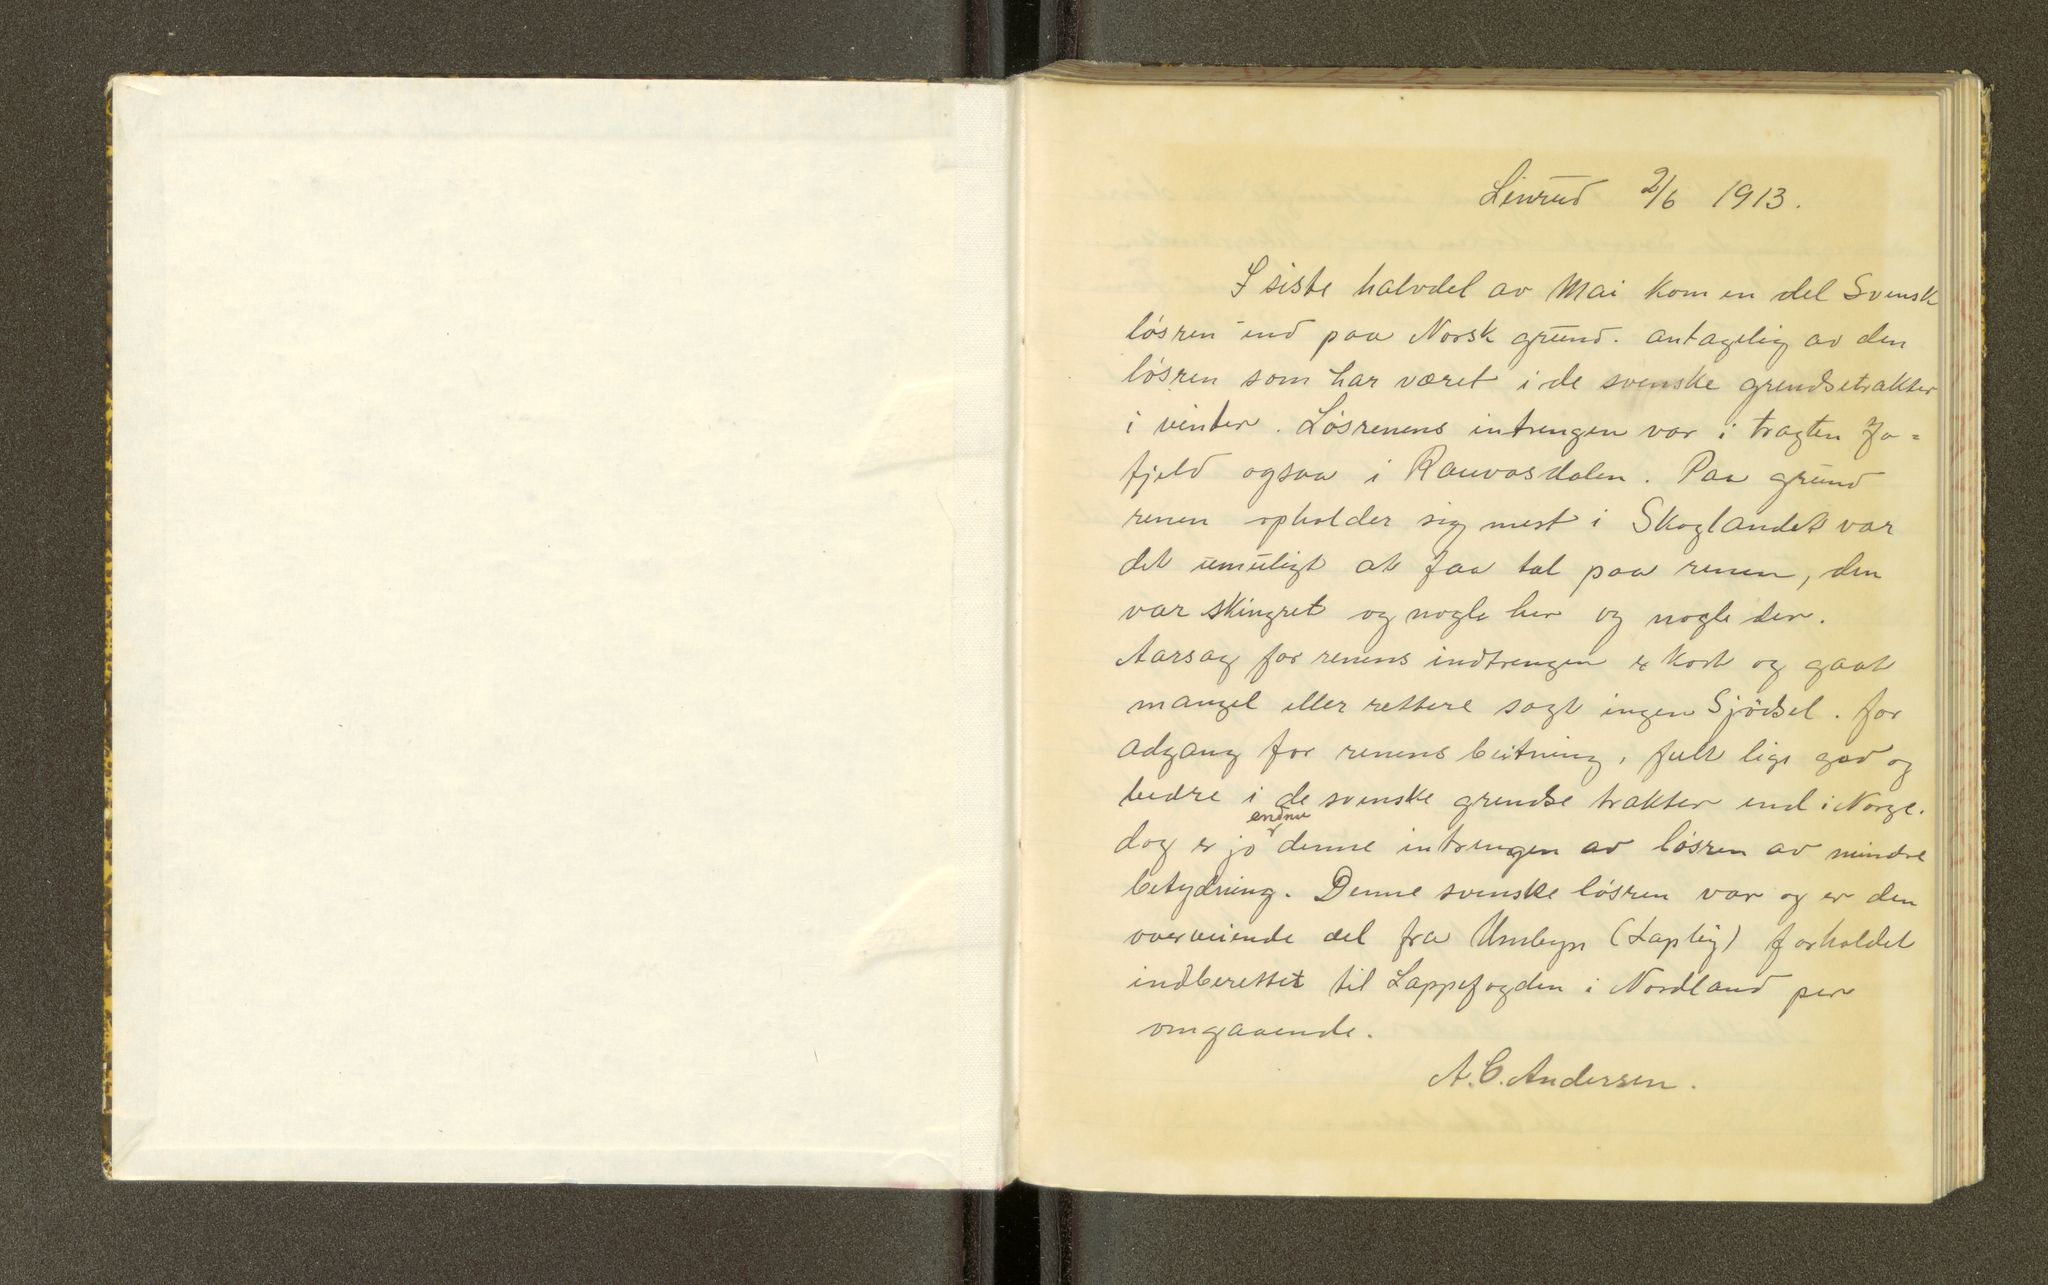 Linrud 2/6 1913.
I siste halvdel av Mai kom en del Svensk
løsren ind paa Norsk grund. antagelig av den
løsren som har været i de svenske grendsetrakter
i vinter. Løsrenens intrengen var i tragten Jo=
fjeld ogsaa i Rauvasdalen. Paa grund
renen opholder sig mest i Skoglandet var
det umuligt at faa tal paa renen, den
var skingret og nogle her og nogle der.
Aarsag for renens indtrengen er kort og gaat
mangel eller rettere sagt ingen Gjødsel. for
adgang for renens beitning, fult lige god og
bedre i de svenske grendse trakter end i Norge.
endnu
dog er jo denne intrengen av løsren av mindre
betydning. Denne svenske løsren var og er den
overveiende del fra Umbyn (Lapby) forholdet
indberettet til Lappefogden i Nordland per
omgaaende.
A.C. Andersen.